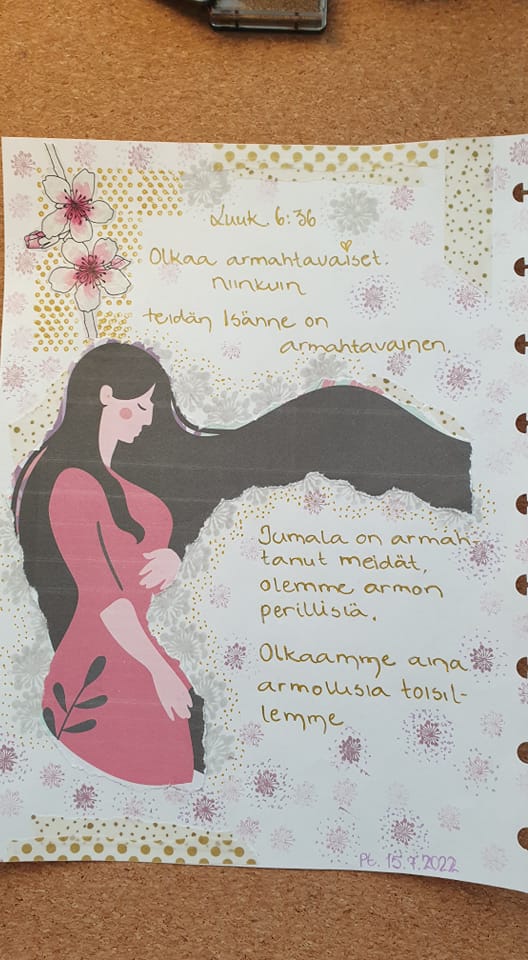 Luuk 6:36
Olkaa armahtavaiset
niinkuin
teidän Isänne on
armahtavainen.
Jumala on armah
tanut meidät,
olemme armon
perillisiä.
Olkaamme aina
armollisia toisil-
lemme
Pt. 15.7.2022